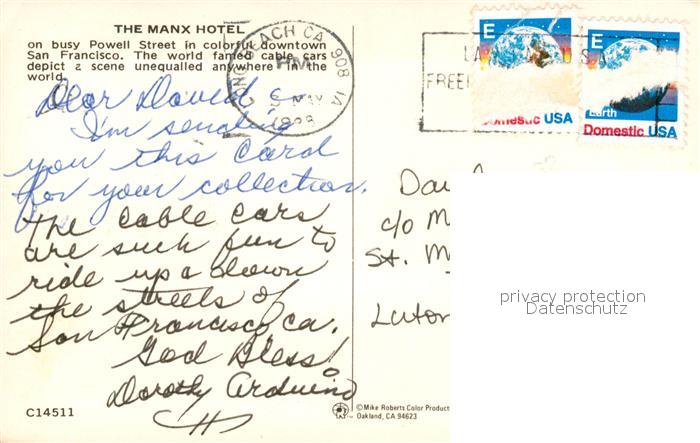 THE MANX HOTEL
on busy Powell Street in colorful downtown
San Francisco. The world famed cable cars
depict a scene unequalled anywhere in the
world.
BEACH CA 908
PM
MAY
1988
E
Domestic USA
E
Earth
Domestic USA
Dear David
I'm sending
you this card
for your collection.
The cable cars
are such fun to
ride up & down
the streets of
San Francisco, Ca.
God Bless!
Dorothy Arduino
c/o M
St. M
privacy protection
Datenschutz
C14511
©Mike Roberts Color Product
Oakland, CA 94623